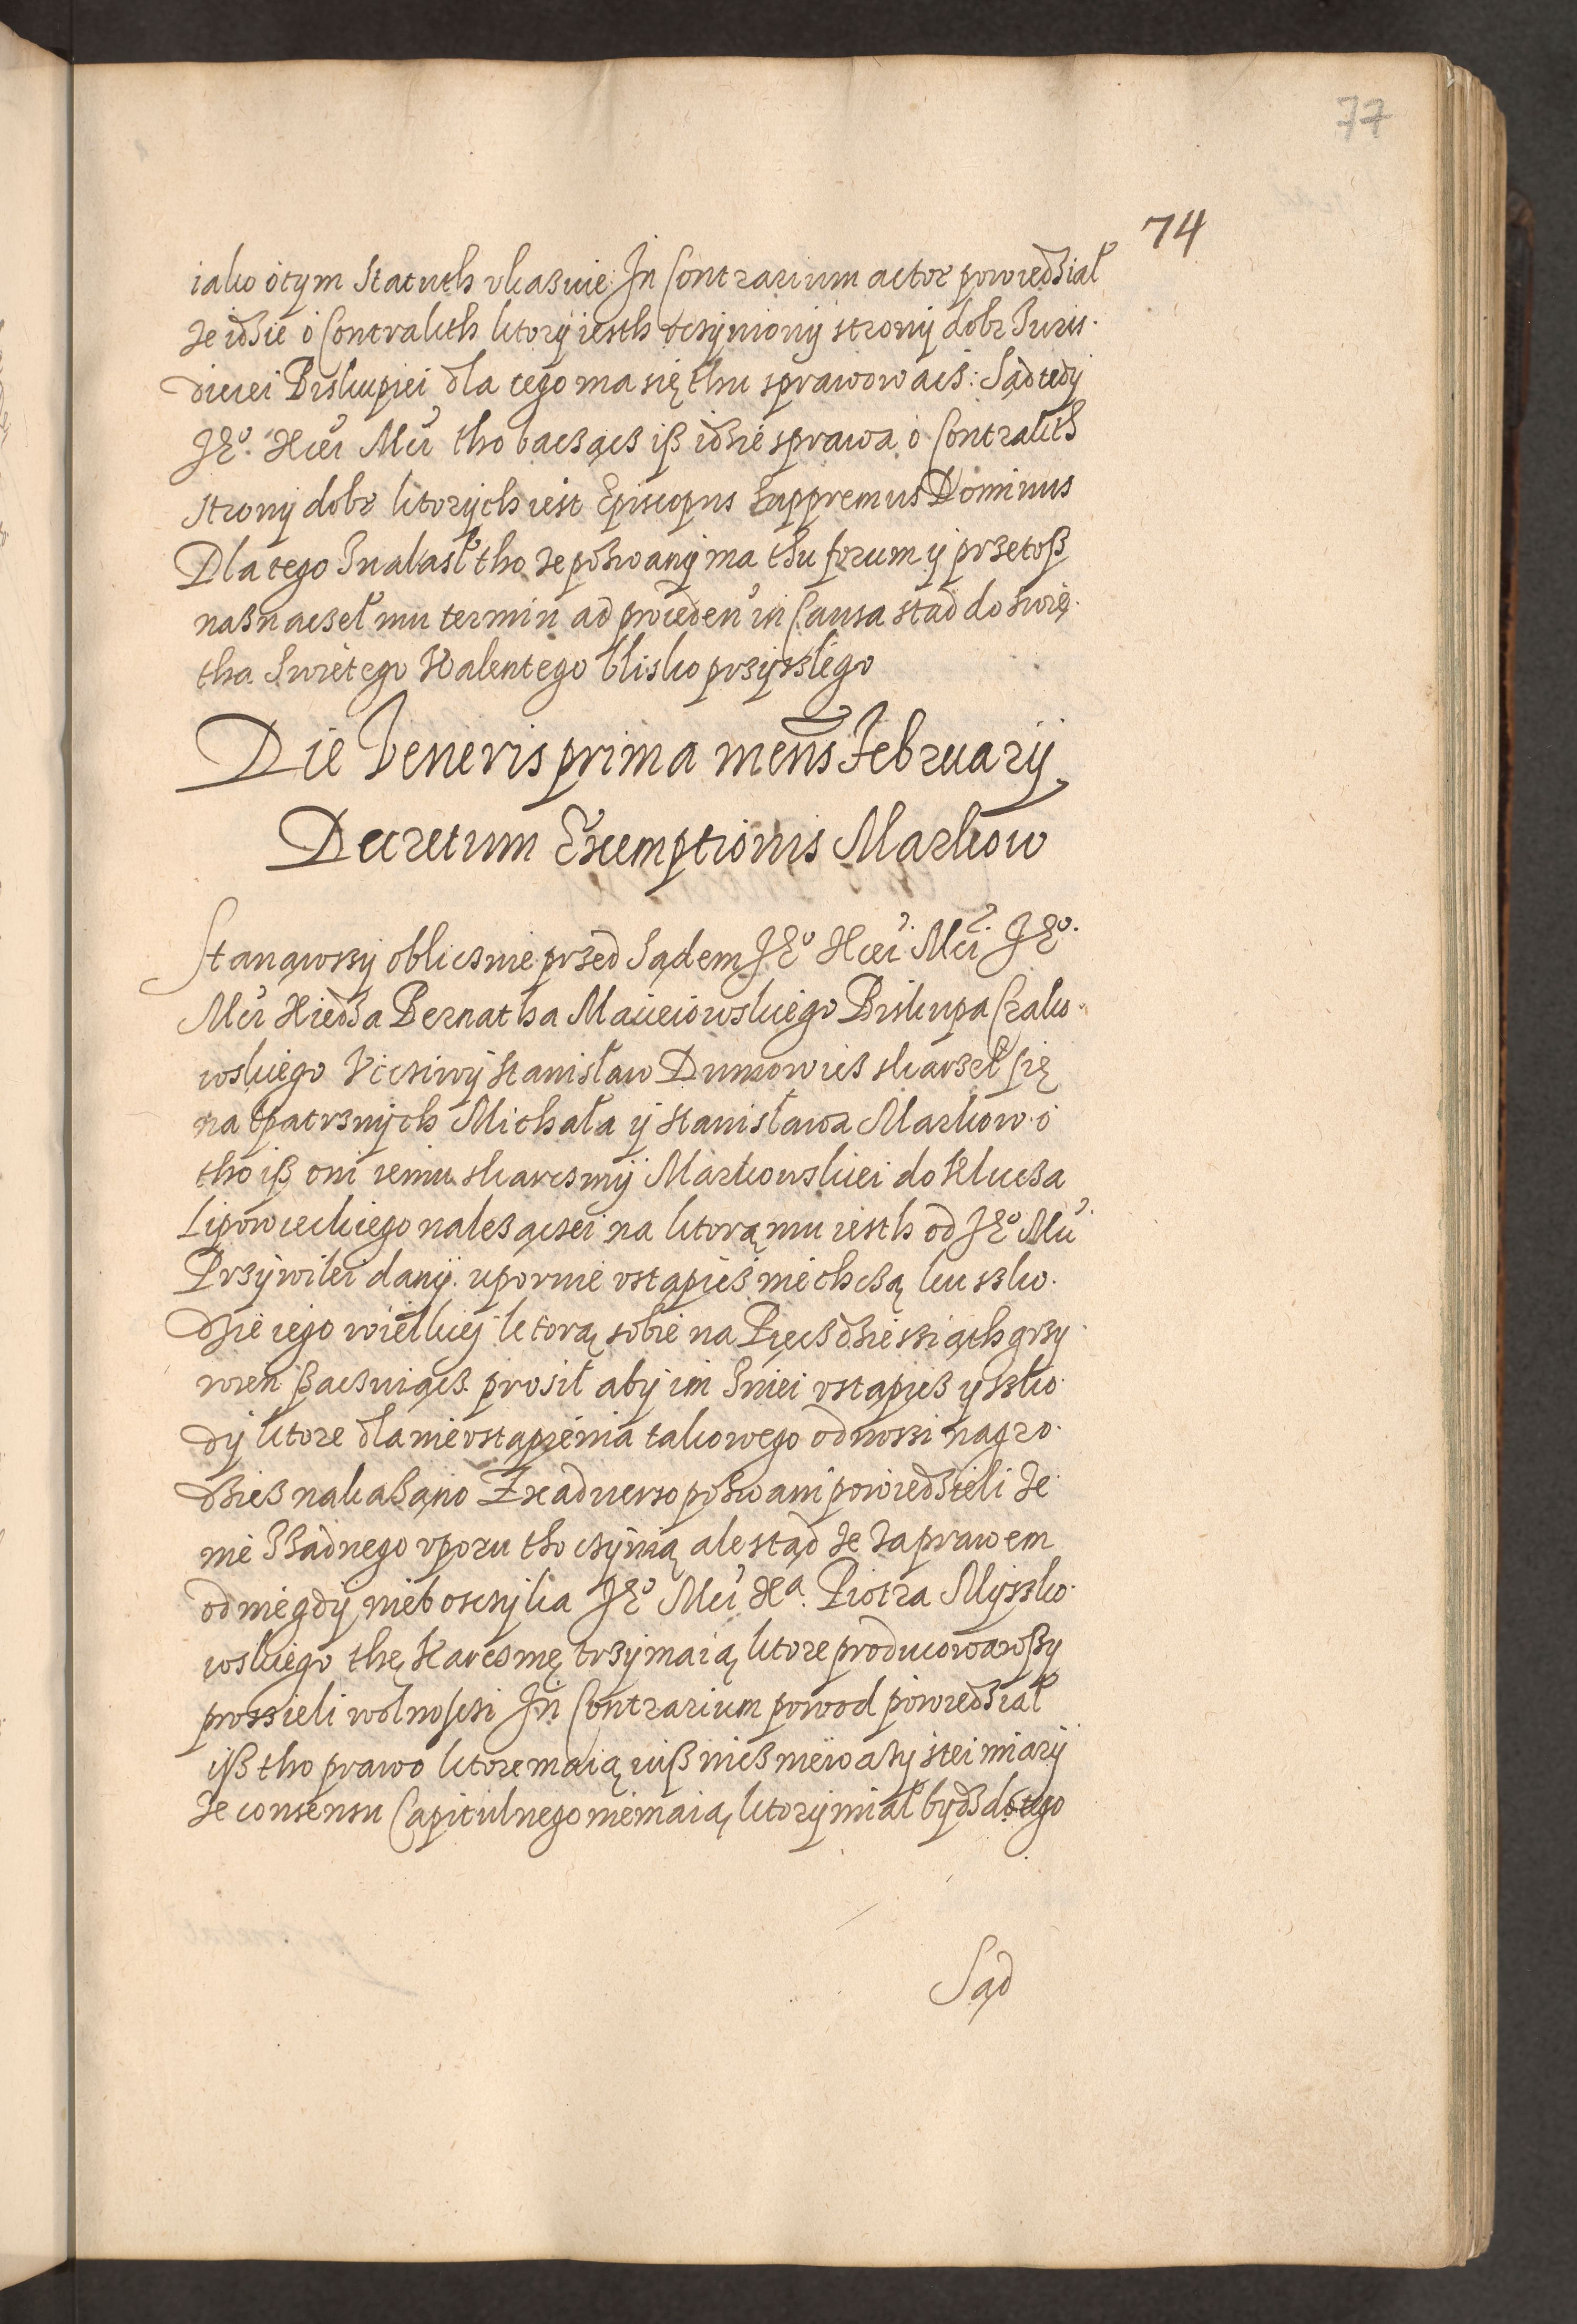 77
74
iako o tym Statuth vkazuie In Contrarium actor powiedział
Ze idzie o Contrakth ktory iesth vczyniony strony dobr Juris-
diciei Biskupiei dla tego ma się thu sprawowacz: Sąd tedy
Je° Xcei Mci tho baczącz isz idzie sprawa o Contrakth
strony dobr ktorych iest Episcopus Suppremus Dominus
Dla tego Znalasł tho Ze pozwany ma thu forum y przetosz
naznaczeł mu termin ad proceden in Causa stąd do Swię-
tha Swiętego Walentego blisko przyszłego
Die Veneris prima mens Februarij
Decretum Exemptionis Markow
Stanąwszy obliczne przed Sądem Je° Xcei Mci Je°
Mci Xiedza Bernatha Macieiowskiego Biskupa Krako-
wskiego Vcciwy Stanisław Dumowicz skarzeł się
na Opatrznych Michała y Stanisława Markow o
tho isz oni iemu skarczmÿ Markowskiei do Klucza
Lipowieckiego nalezączei na ktorą mu iesth od Je° Mci
Przywilei danÿ upornie vstąpicz nie chczą ku szko-
dzie iego wielkiey ktorą sobie na Pięczdziesziąth grzy-
wien szaczuiącz prosił aby im Zniei vstąpicz y szko-
dy ktore dla nievstąpienia takowego odnoszi nagro-
dzicz nakazano Ex aduerso pozwani powiedzieli Ze
nie Zzadnego vporu tho czynią ale stąd Ze Zaprawem
od niegdy nieboszczyka Je° Mci Xa Piotra Myszko-
wskiego thę Karczmę trzymaią ktore producowawszy
proszieli wolnosczi In Contrarium powod powiedział
isz tho prawo ktore maią iusz nicz niewazy stei miary
Ze consensu Capitulnego niemaią ktory miał bydz do tego
Sąd